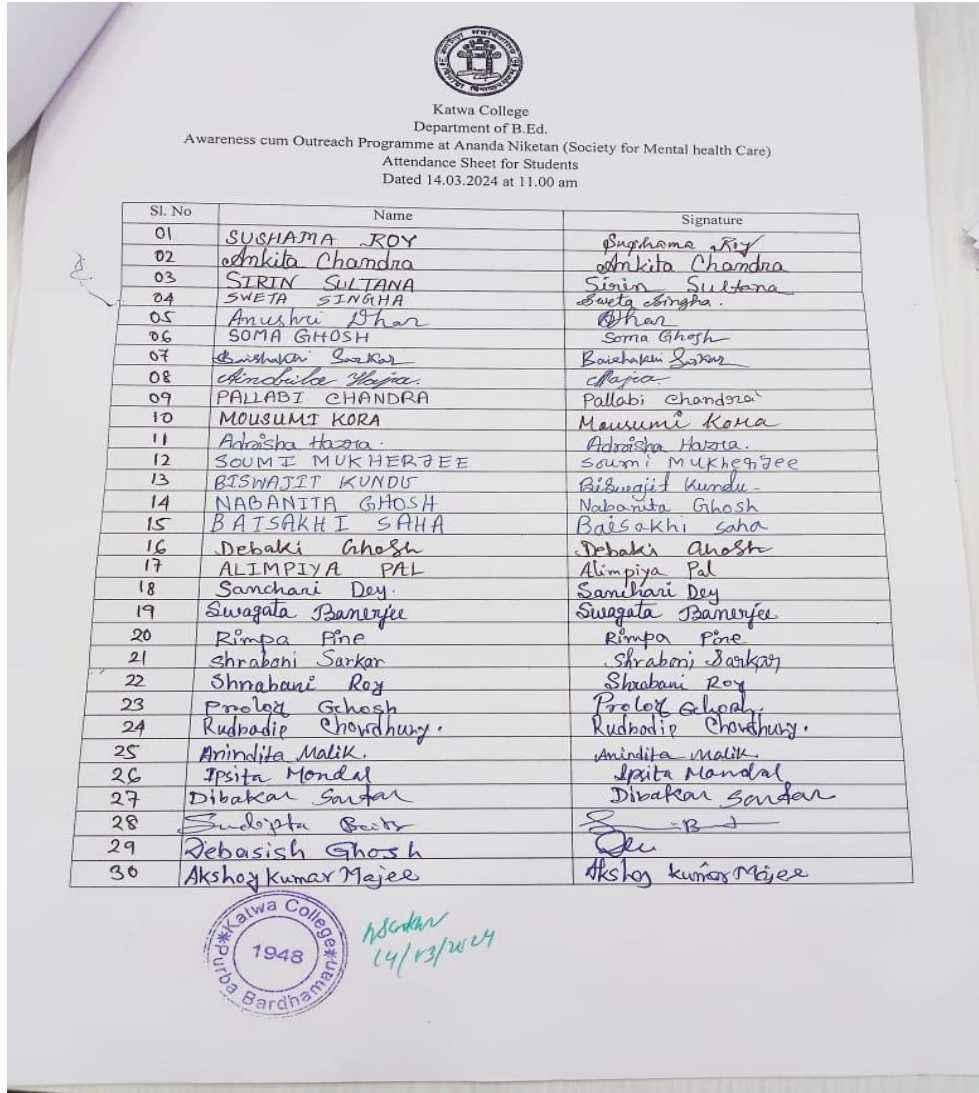 Katwa College
Department of B.Ed.
Awareness cum Outreach Programme at Ananda Niketan (Society for Mental health Care)
Attendance Sheet for Students
Dated 14.03.2024 at 11.00 am
Sl. No Name Signature
01 SUSHAMA ROY Sushama Roy
02 Ankita Chandra Ankita Chandra
03 SIRIN SULTANA Sirin Sultana
04 SWETA SINGHA Sweta Singha.
05 Anushri Dhar Dhar
06 SOMA GHOSH Soma Ghosh
07 Baishakhi Sarkar Baishakhi Sarkar
08
09 PALLABI CHANDRA Pallabi Chandra
10 MOUSUMI KORA Mousumi Kora
11 Adraisha Hazra. Adraisha Hazra.
12 SOUMI MUKHERJEE Soumi Mukherjee
13 BISWAJIT KUNDU Biswajit Kundu
14 NABANITA GHOSH Nabanita Ghosh
15 BAISAKHI SAHA Baisakhi saha
16 Debaki Ghosh Debaki Ghosh
17 ALIMPIYA PAL Alimpiya Pal
18 Sanchari Dey. Sanchari Dey
19 Swagata Banerjee Swagata Banerjee
20 Rimpa Pine Rimpa Pine
21 Shraboni Sarkar Shraboni Sarkar
22 Shrabani Roy Shrabani Roy
23 Proloy Ghosh Proloy Ghosh.
24 Rudradip Chowdhury. Rudradip Chowdhury.
25 Anindita Malik. Anindita Malik.
26 Ipsita Mondal Ipsita Mondal
27 Dibakar Sardar Dibakar Sardar
28 Sudipta
29 Debasish Ghosh
30 Akshoy Kumar Majee Akshoy Kumar Majee
Katwa College
1948
Purba Bardhaman
14/03/2024